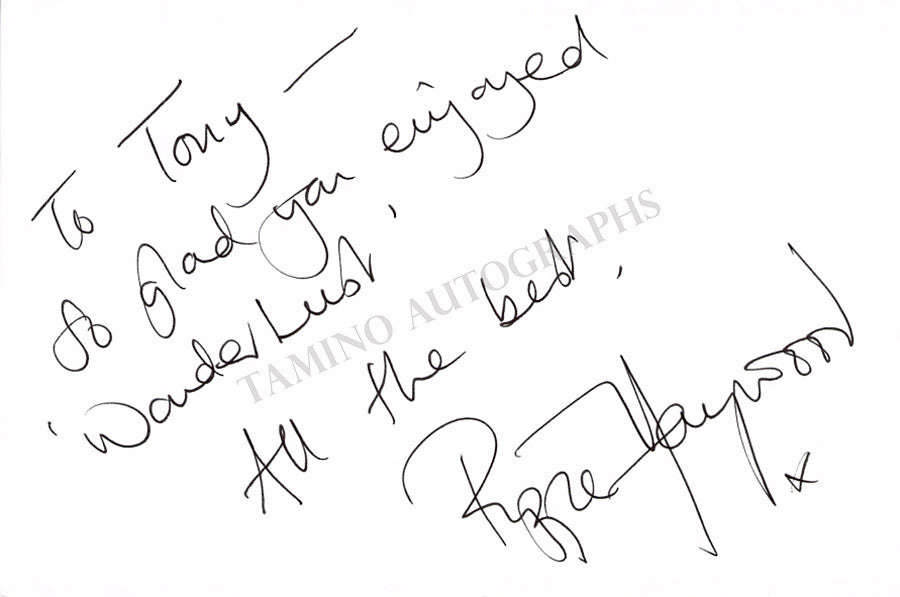 To Tony —
So glad you enjoyed
'WanderLust'
All the best,
Pippa Haywood x
TAMINO AUTOGRAPHS